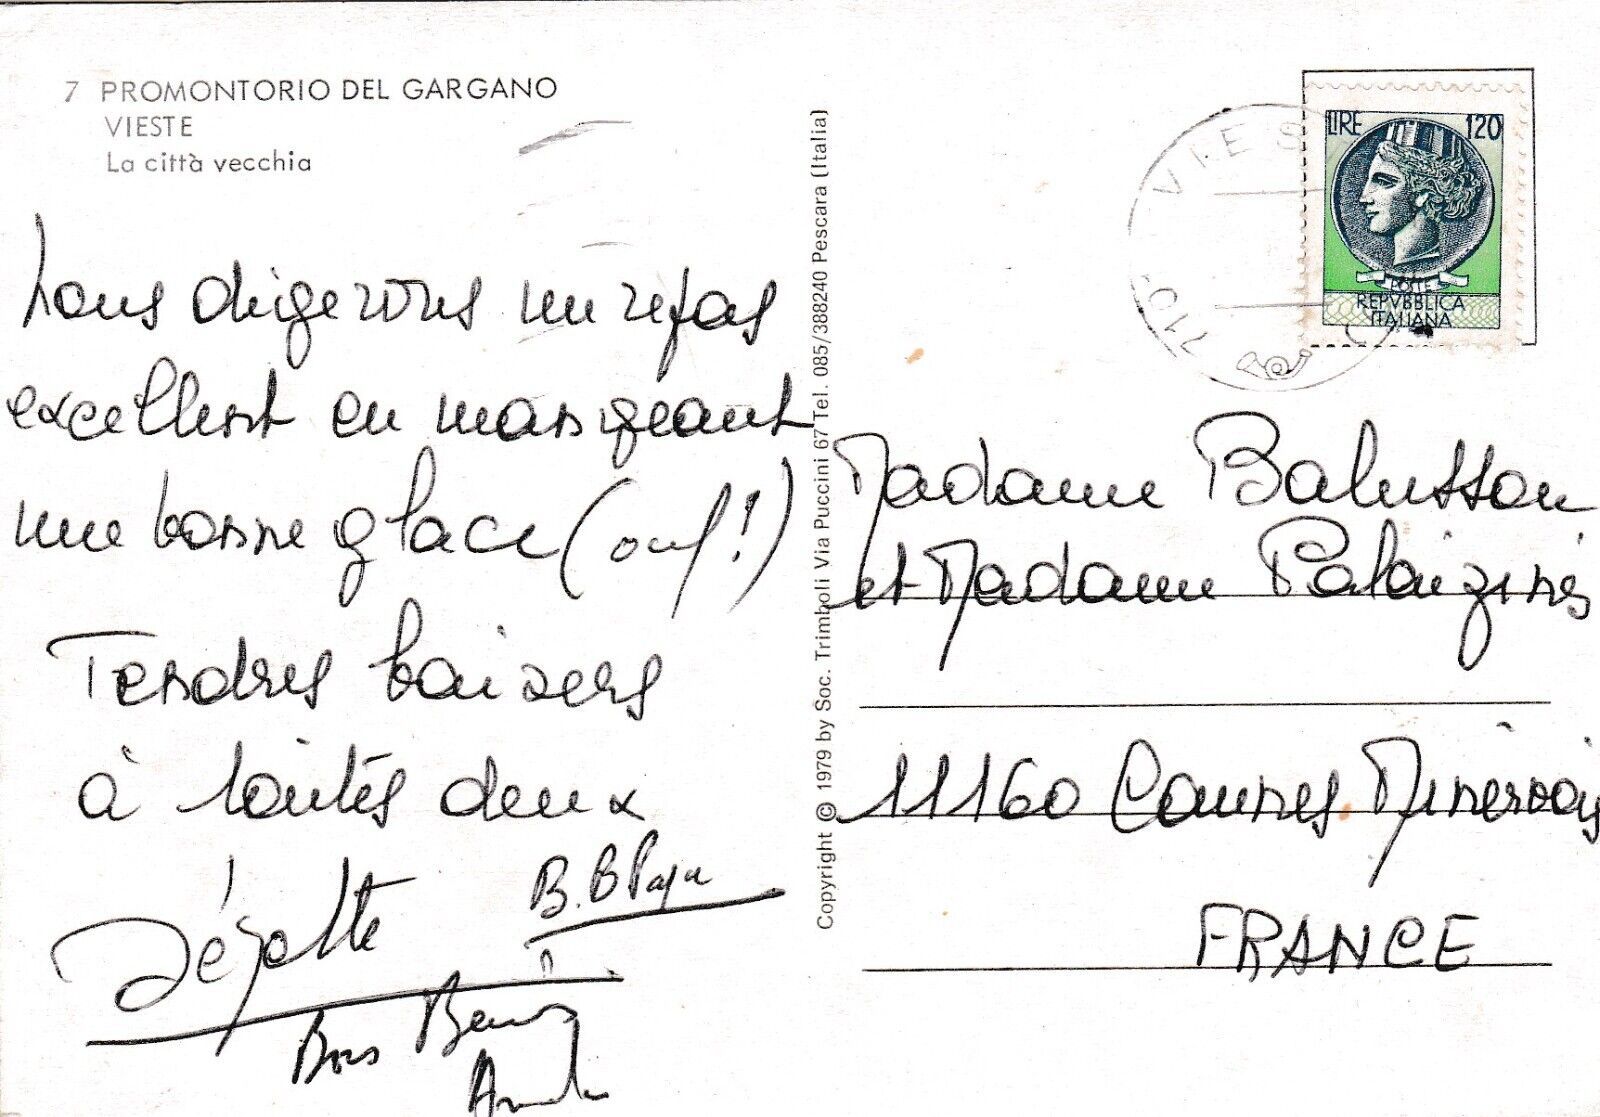 7 PROMONTORIO DEL GARGANO
VIESTE
La città vecchia
Nous digérons un repas
excellent en mangeant
une bonne glace (ouf!)
Tendres baisers
à toutes deux
B. B Papa
Bons Baisers
Copyright © 1979 by Soc. Trimboli Via Puccini 67 Tel. 085/388240 Pescara (Italia)
VIES
710
LIRE 120
POSTE
REPVBBLICA
ITALIANA
Madame Balusson
et Madame
11160 Caunes Minervois
FRANCE